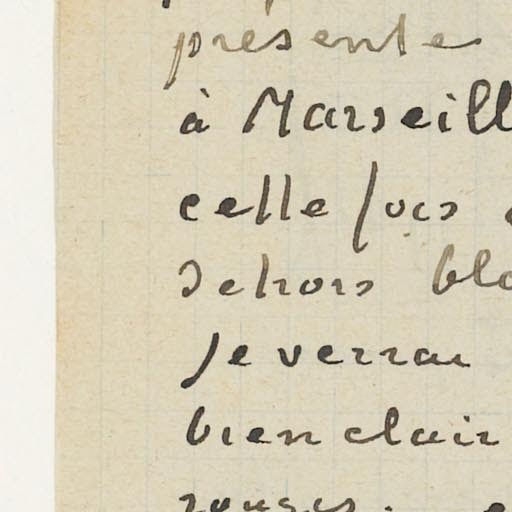 présente
à Marseill
celle fois
dehors bla
Je verrai
bien clair
rouges.